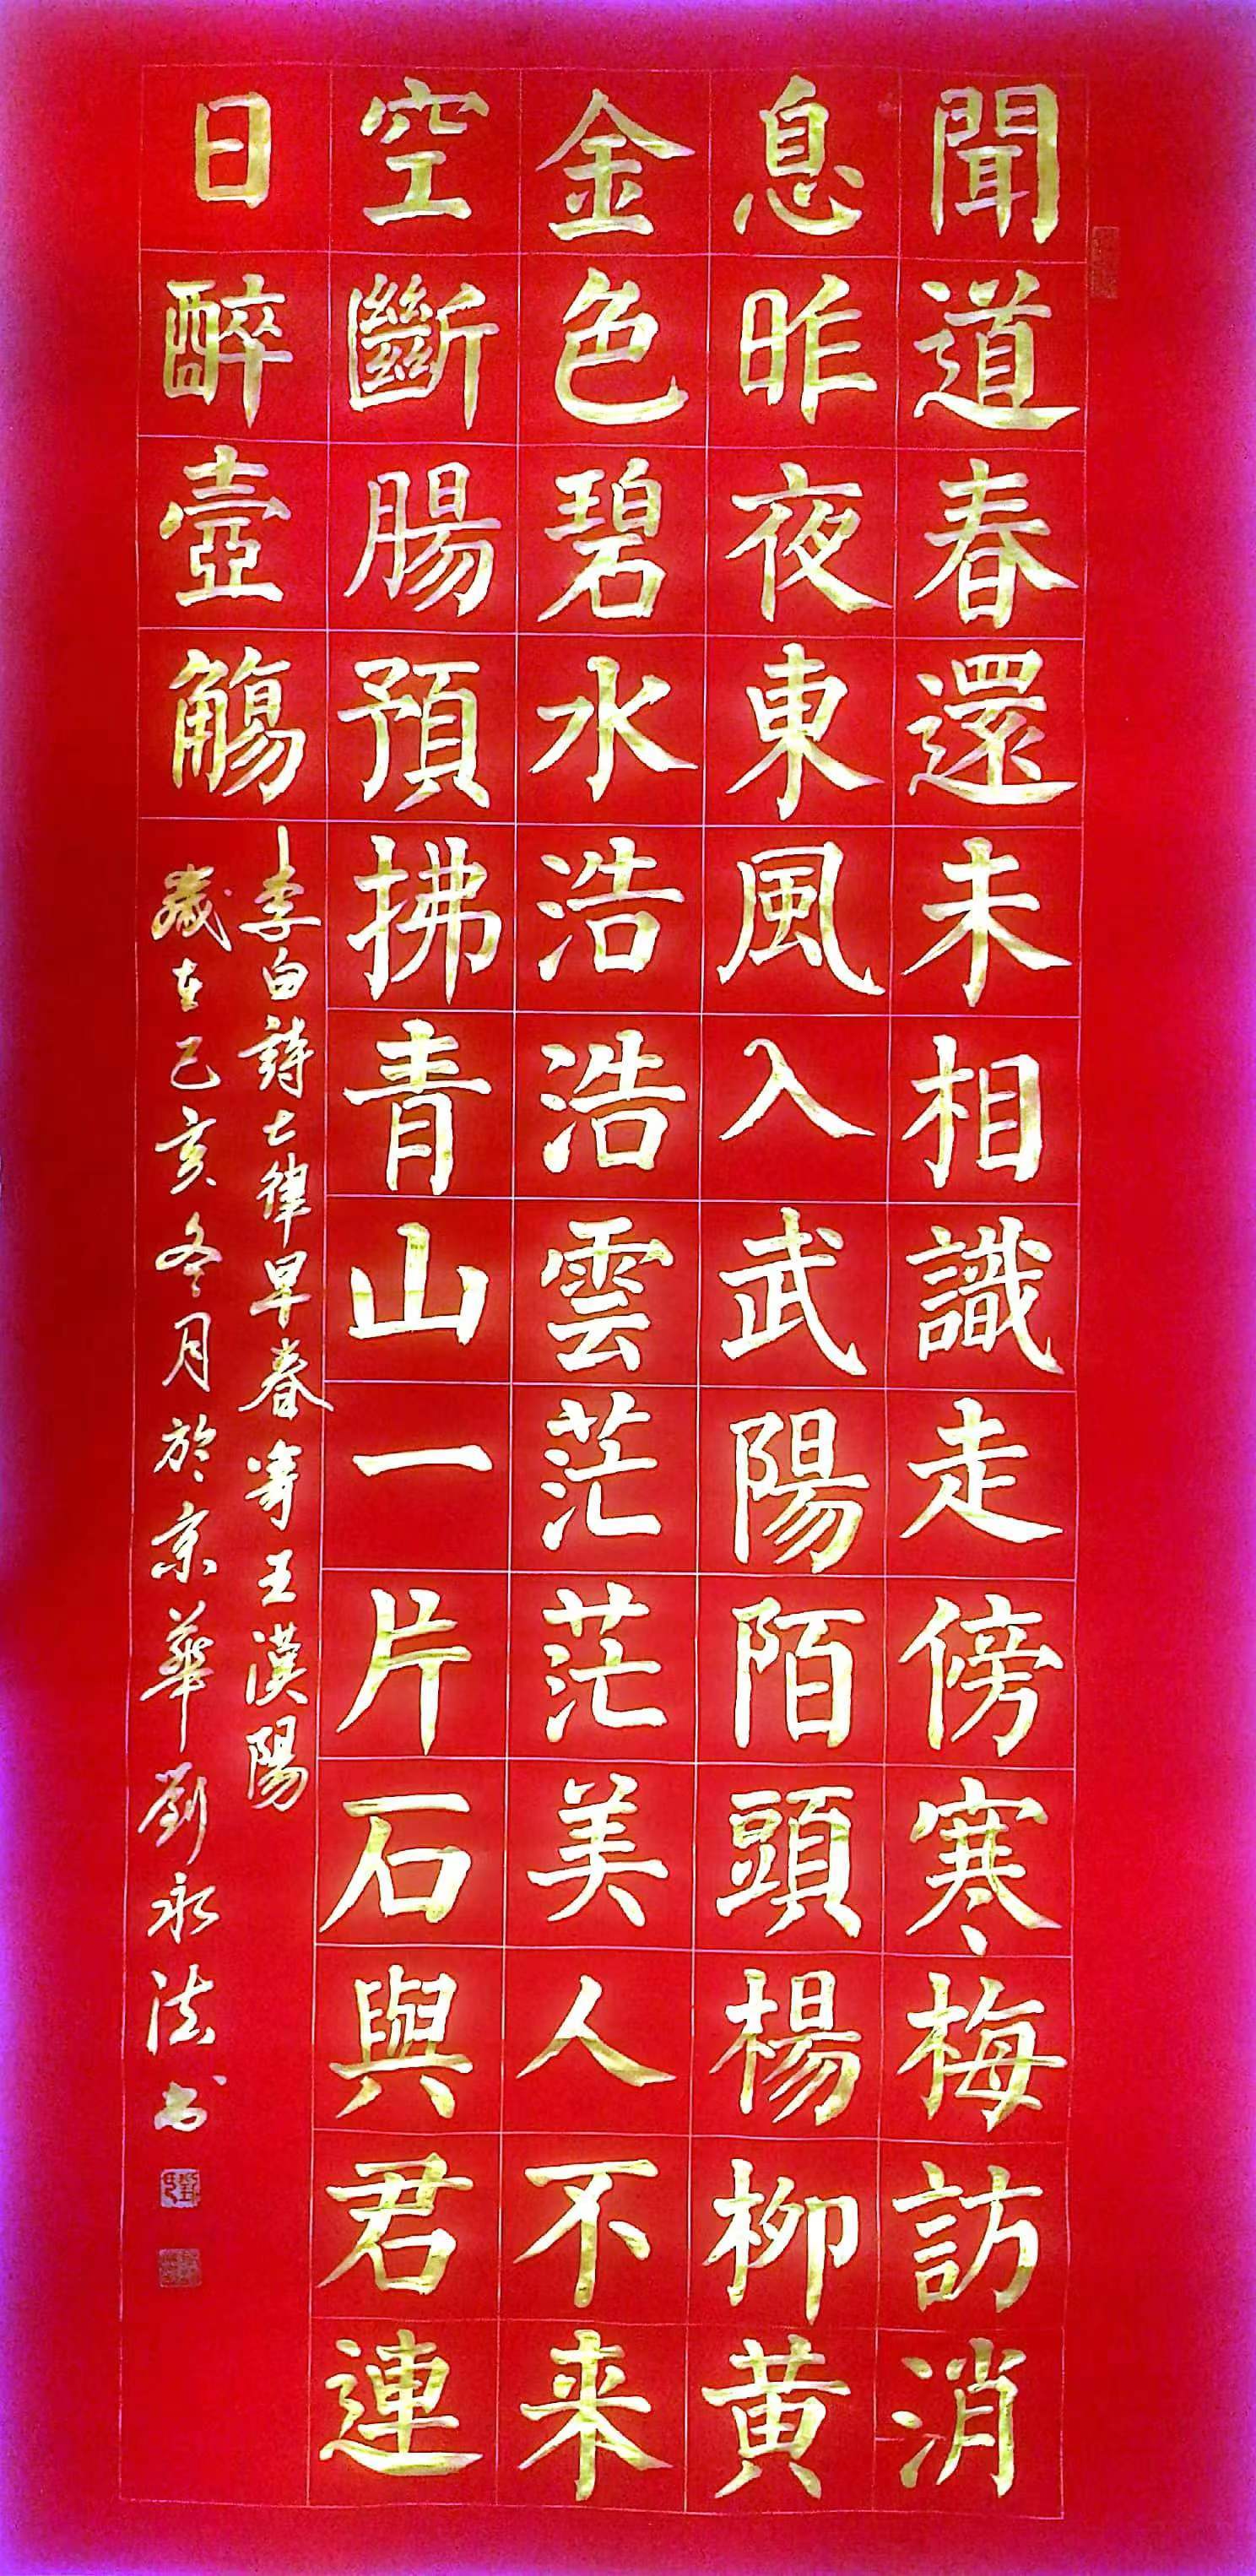 聞道春還未相識走傍寒梅訪消
息昨夜東風入武陽陌頭楊柳黄
金色碧水浩浩雲茫茫美人不来
空斷腸預拂青山一片石與君連
日醉壺觴
李白詩七律早春寄王漢陽
歲在己亥冬月於京華劉永法书